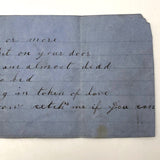 or more
on your door
am almost dead
to bed
in token of love
me if you can